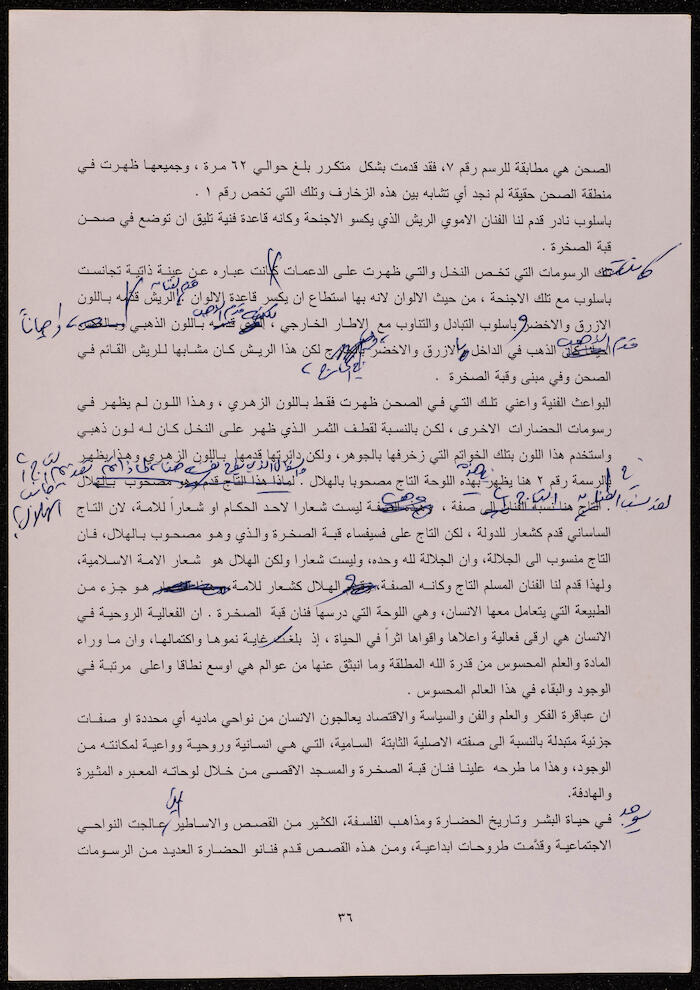 الصحن هي مطابقة للرسم رقم ٧، فقد قدمت بشكل متكرر بلغ حوالي ٦٢ مرة ، وجميعها ظهرت في
منطقة الصحن حقيقة لم نجد أي تشابه بين هذه الزخارف وتلك التي تخص رقم ١ .
باسلوب نادر قدم لنا الفنان الاموي الريش الذي يكسو الاجنحة وكانه قاعدة فنية تليق ان توضع في صحن
قبة الصخرة .
تلك الرسومات التي تخص النخل والتي ظهرت على الدعمات كانت عباره عن عينة ذاتية تجانست
باسلوب مع تلك الاجنحة ، من حيث الالوان لانه بها استطاع ان يكسر قاعدة الالوان الريش قدمه باللون
الازرق والاخضر وباسلوب التبادل والتناوب مع الاطار الخارجي ، قدمه باللون الذهبي واحياناً
قدم الذهب في الداخل الازرق والاخضر لكن هذا الريش كان مشابها للريش القائم في
الصحن وفي مبنى وقبة الصخرة .
البواعث الفنية واعني تلك التي في الصحن ظهرت فقط باللون الزهري ، وهذا اللون لم يظهر في
رسومات الحضارات الاخرى ، لكن بالنسبة لقطف الثمر الذي ظهر على النخل كان له لون ذهبي
واستخدم هذا اللون بتلك الخواتم التي زخرفها بالجوهر، ولكن دائرتها قدمها باللون الزهري وهذا يظهر
بالرسمة رقم ٢ هنا يظهر بهذه اللوحة التاج مصحوبا بالهلال . لماذا هذا التاج قدم وهو مصحوب بالهلال
التاج هنا نسبة الفنان الى صفة ، وهذه الصفة ليست شعارا لاحد الحكام او شعاراً للامة، لان التاج
الساساني قدم كشعار للدولة ، لكن التاج على فسيفساء قبة الصخرة والذي وهو مصحوب بالهلال، فان
التاج منسوب الى الجلالة، وان الجلالة لله وحده، وليست شعارا ولكن الهلال هو شعار الامة الاسلامية،
ولهذا قدم لنا الفنان المسلم التاج وكانه الصفة، الهلال كشعار للامة هو جزء من
الطبيعة التي يتعامل معها الانسان، وهي اللوحة التي درسها فنان قبة الصخرة . ان الفعالية الروحية في
الانسان هي ارقى فعالية واعلاها واقواها اثراً في الحياة ، إذ بلغت غاية نموها واكتمالها، وان ما وراء
المادة والعلم المحسوس من قدرة الله المطلقة وما انبثق عنها من عوالم هي اوسع نطاقا واعلى مرتبة في
الوجود والبقاء في هذا العالم المحسوس .
ان عباقرة الفكر والعلم والفن والسياسة والاقتصاد يعالجون الانسان من نواحي ماديه أي محددة او صفات
جزئية متبدلة بالنسبة الى صفته الاصلية الثابتة السامية، التي هي انسانية وروحية وواعية لمكانته من
الوجود، وهذا ما طرحه علينا فنان قبة الصخرة والمسجد الاقصى من خلال لوحاته المعبره المثيرة
والهادفة.
يوجد في حياة البشر وتاريخ الحضارة ومذاهب الفلسفة، الكثير من القصص والاساطير عالجت النواحي
الاجتماعية وقدّمت طروحات ابداعية، ومن هذه القصص قدم فنانو الحضارة العديد من الرسومات
٣٦